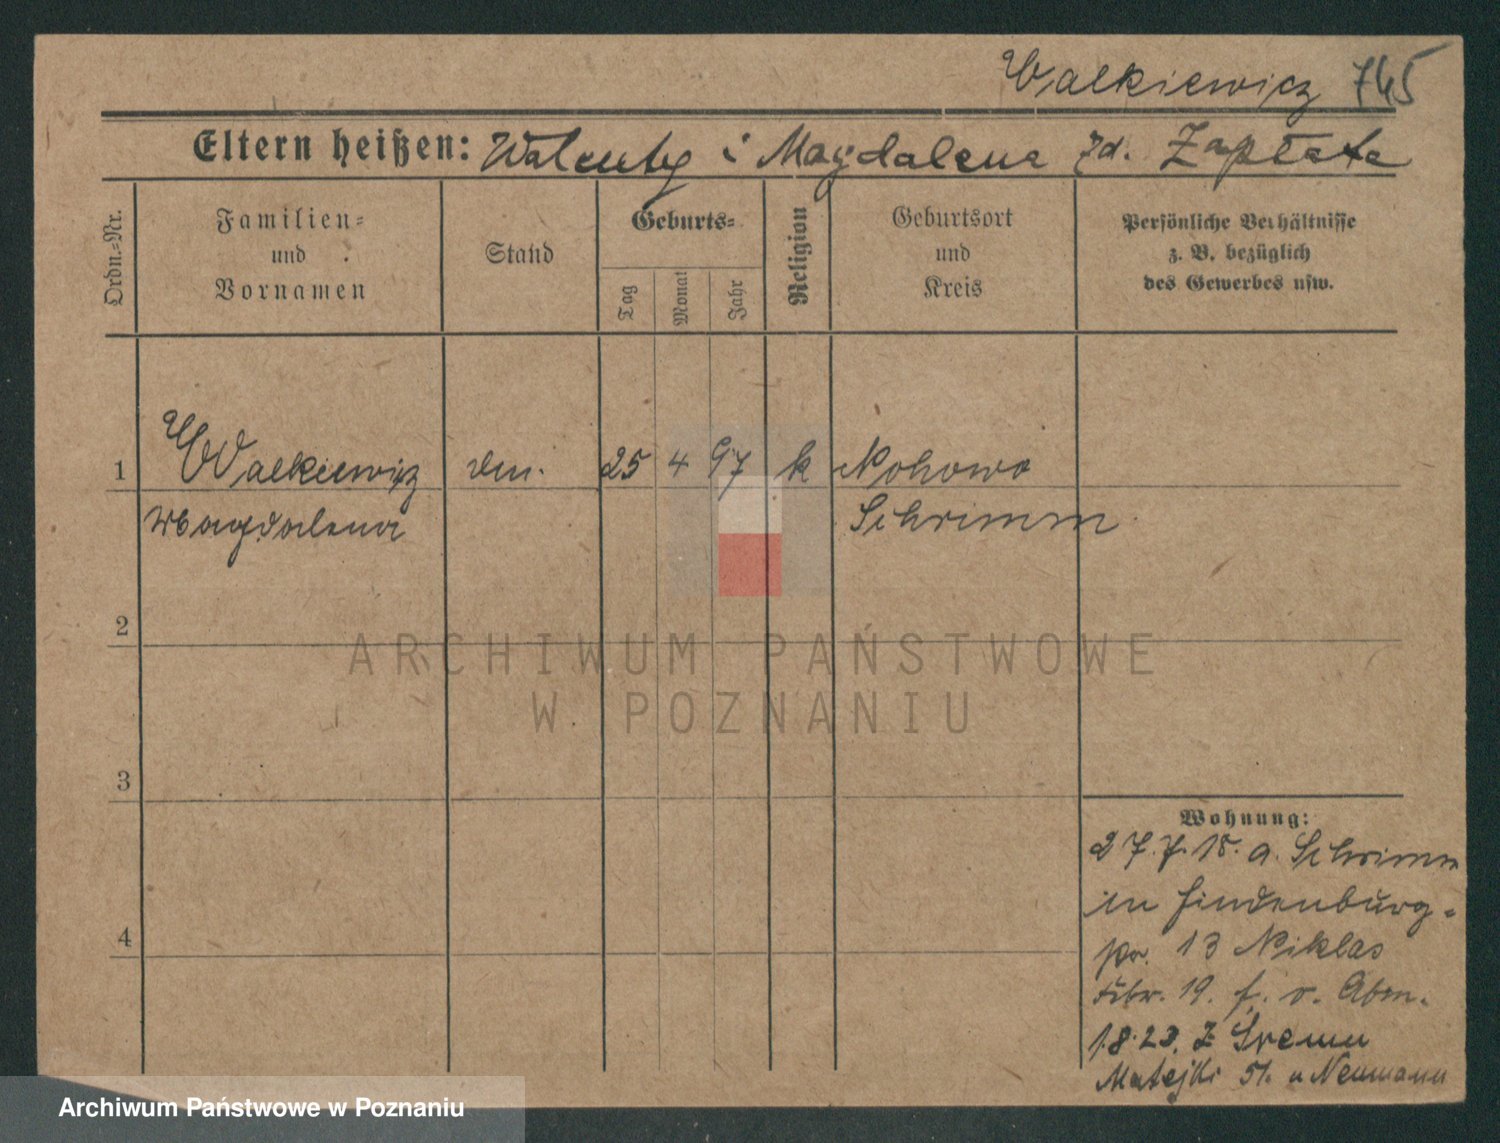 Walkiewicz 745
Eltern heißen: Walenty i Magdalena zd. Zapłata
Ordn.-Nr.
Familien-
und
Vornamen
Stand
Geburts-
Tag
Monat
Jahr
Religion
Geburtsort
und
Kreis
Persönliche Verhältnisse
z. B. bezüglich
des Gewerbes usw.
1 Walkiewicz 25 4 97 k Nohowo
Magdalena Schrimm
2
3
4
Wohnung:
27.7.18. a. Schrimm
in Hindenburg-
pr. 13 Niklas
Febr. 19. f. v. Abm.
1.8.23. Z Śremu
Matejki 51. u Neumann
ARCHIWUM PAŃSTWOWE
W POZNANIU
Archiwum Państwowe w Poznaniu